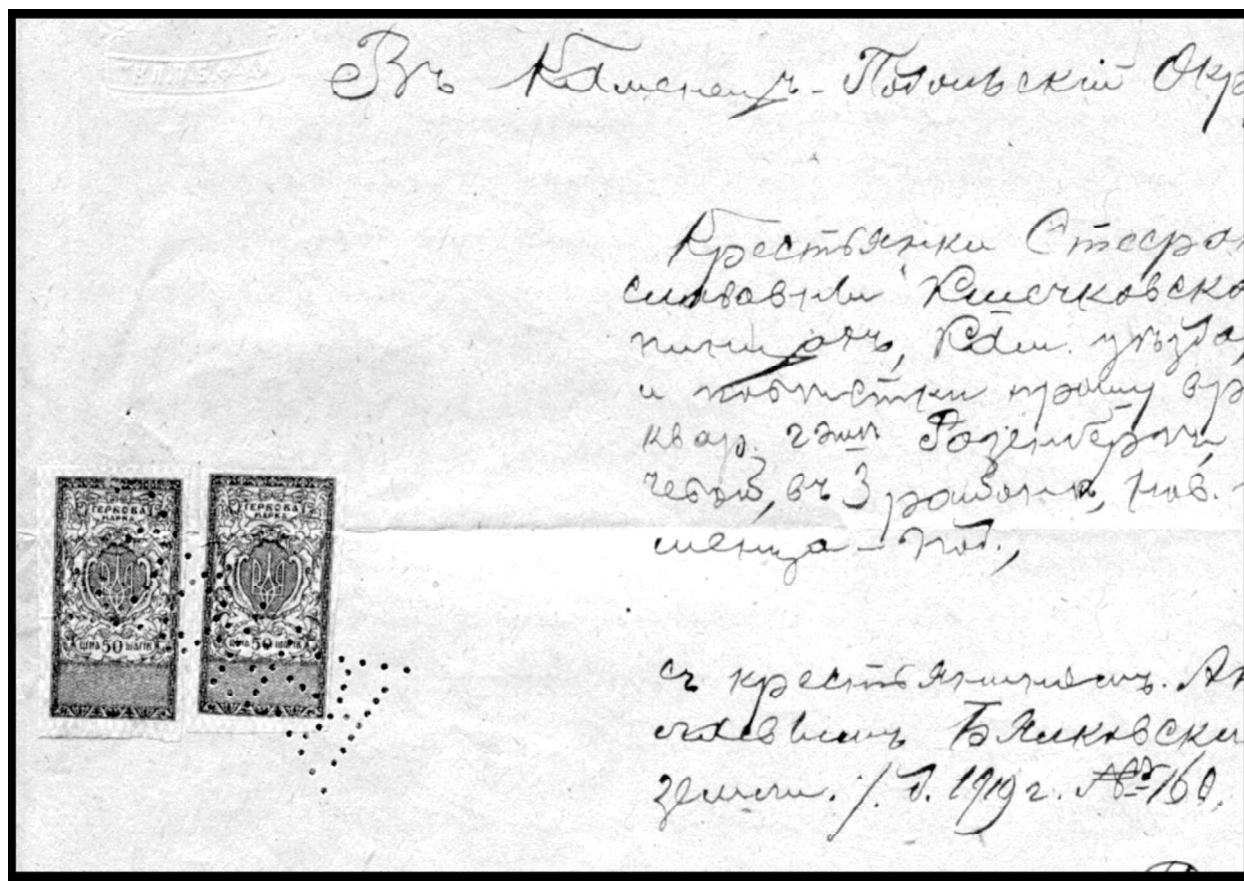 Въ Каменецъ-Подольскій Окр
Крестьянки Стефа
славовны Клечковско
Кам. уѣзда,
и повѣстки прошу вр
квар. Розенберга,
въ 3 районѣ, Нов.
менца-Под.,
съ крестьяниномъ Ан
Бялковски
земли. /. д. 1919 г. № 160,
ТЕРКОВА
МАРКА
ЦІНА 50 ШАГІВ
ТЕРКОВА
МАРКА
ЦІНА 50 ШАГІВ